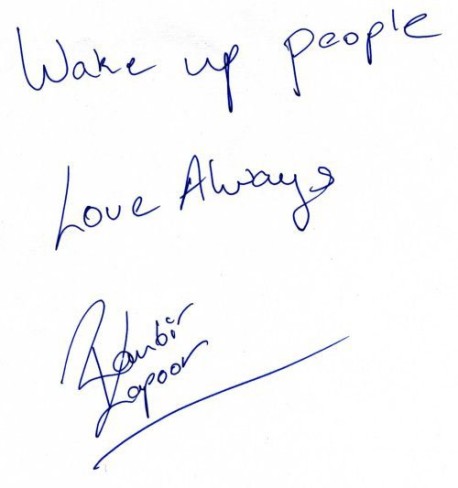 Wake up people
Love Always
Ranbir
Kapoor